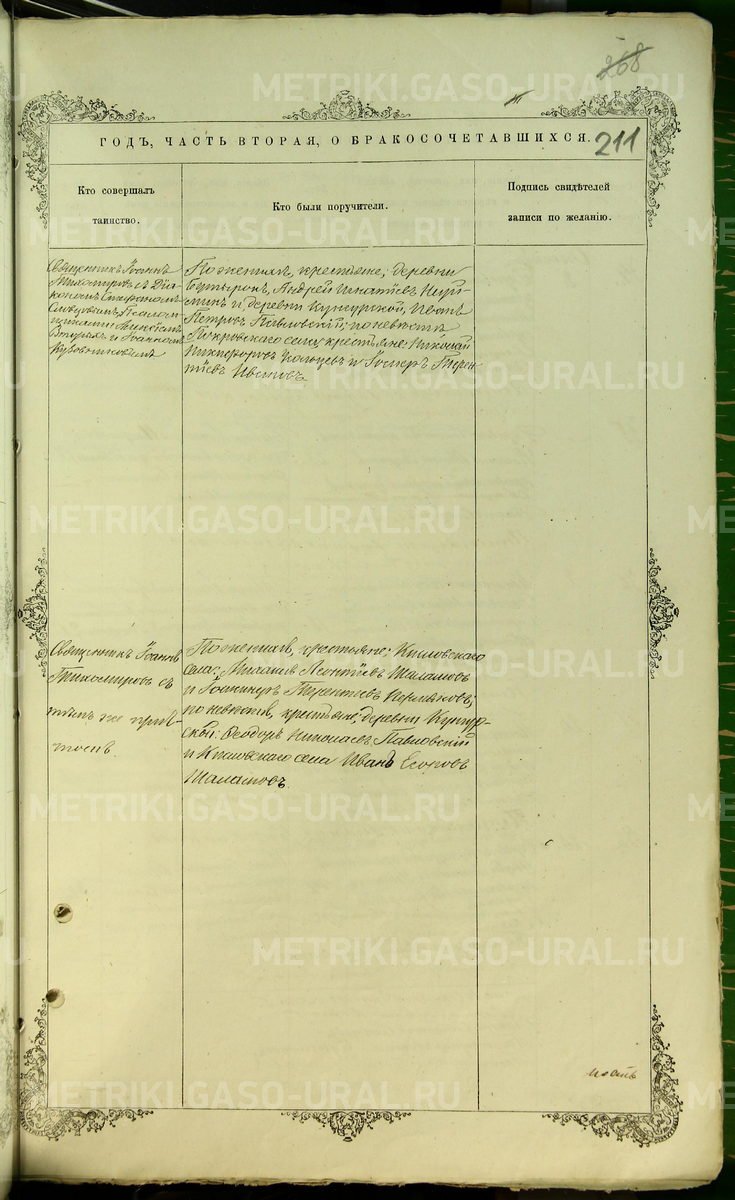 268
ГОДЪ, ЧАСТЬ ВТОРАЯ, О БРАКОСОЧЕТАВШИХСЯ.
211
Кто совершалъ
таинство.
Кто были поручители.
Подпись свидѣтелей
записи по желанію.
Священникъ Іоаннъ
Тихомировъ съ Діа-
кономъ Стефаномъ
Псалом-
щиками:
и Іоанномъ
По женихѣ, крестьяне; деревни
Бутыркой, Андрей Игнатіевъ
и деревни Кунгурской, Иванъ
Петровъ Павловскій; по невѣстѣ
Покровскаго села, крестьяне: Николай
Никифоровъ и Терен-
тіевъ Ивановъ.
Священникъ Іоаннъ
Тихомировъ съ
тѣмъ же прич-
томъ.
По женихѣ, крестьяне; Кисловскаго
села: Михаилъ Леонтіевъ Шаламовъ
и Терентіевъ
по невѣстѣ, крестьяне; деревни Кунгур-
ской: Ѳеодоръ Николаевъ Павловскій
и Кисловскаго села Иванъ Егоровъ
Шаламовъ.
METRIKI.GASO-URAL.RU